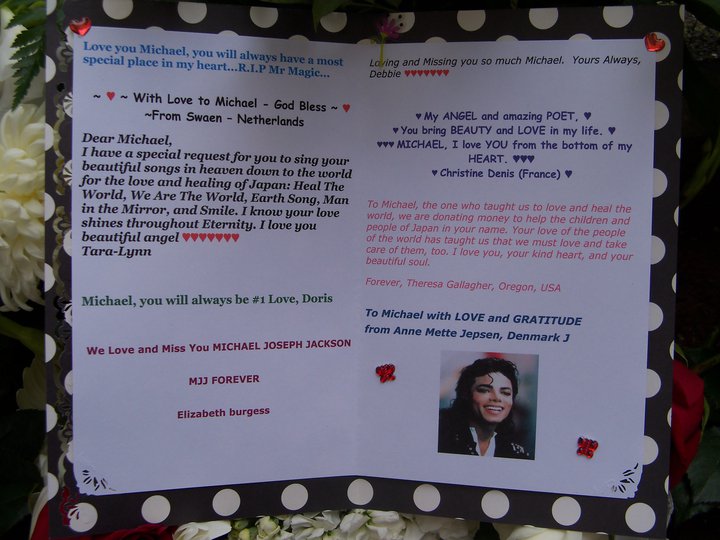 Love you Michael, you will always have a most
special place in my heart...R.I.P Mr Magic...
~ ♥ ~ With Love to Michael - God Bless ~ ♥
~From Swaen – Netherlands
Dear Michael,
I have a special request for you to sing your
beautiful songs in heaven down to the world
for the love and healing of Japan: Heal The
World, We Are The World, Earth Song, Man
in the Mirror, and Smile. I know your love
shines throughout Eternity. I love you
beautiful angel ♥♥♥♥♥♥♥
Tara-Lynn
Michael, you will always be #1 Love, Doris
We Love and Miss You MICHAEL JOSEPH JACKSON
MJJ FOREVER
Elizabeth burgess
Loving and Missing you so much Michael. Yours Always,
Debbie ♥♥♥♥♥♥♥
♥ My ANGEL and amazing POET, ♥
♥You bring BEAUTY and LOVE in my life. ♥
♥♥♥ MICHAEL, I love YOU from the bottom of my
HEART. ♥♥♥
♥Christine Denis (France) ♥
To Michael, the one who taught us to love and heal the
world, we are donating money to help the children and
people of Japan in your name. Your love of the people
of the world has taught us that we must love and take
care of them, too. I love you, your kind heart, and your
beautiful soul.
Forever, Theresa Gallagher, Oregon, USA
To Michael with LOVE and GRATITUDE
from Anne Mette Jepsen, Denmark J